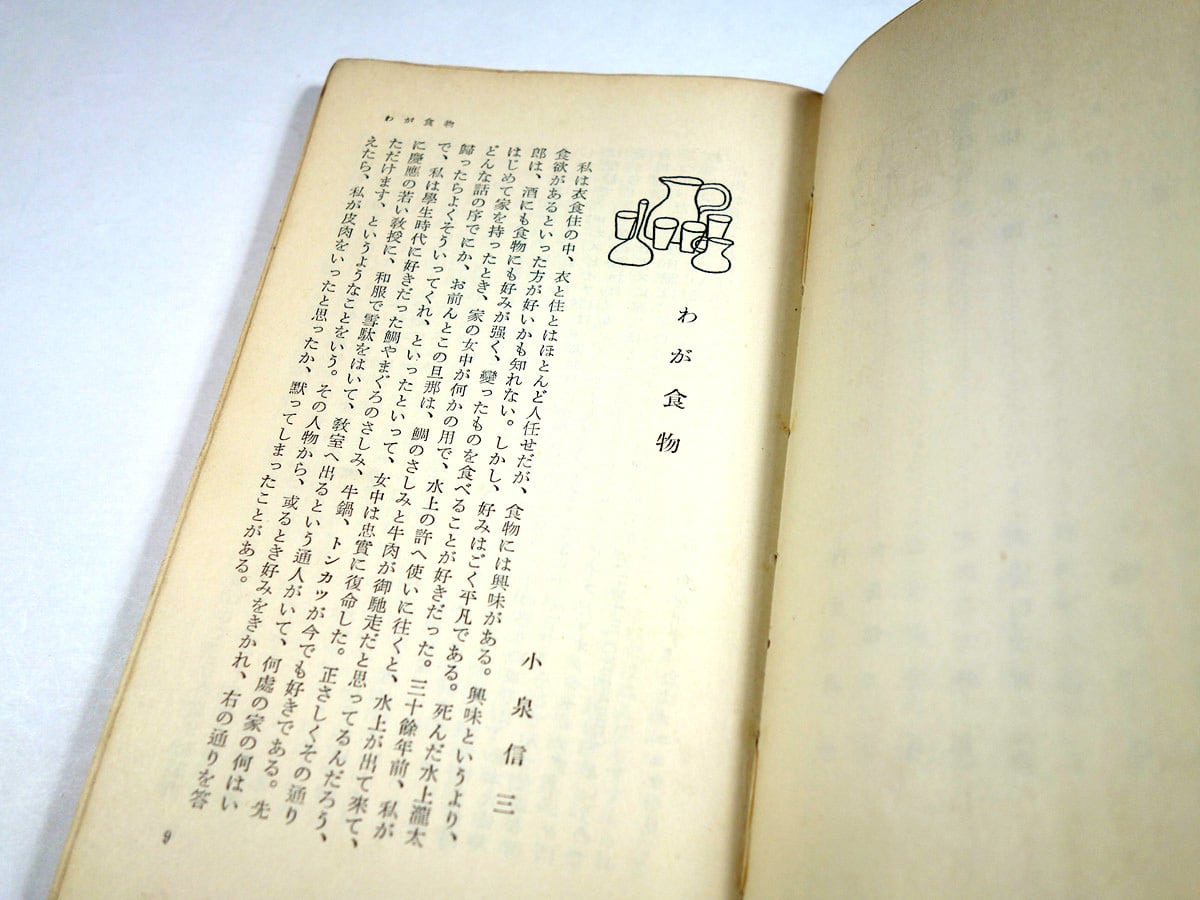 わが食物
わが食物
小泉信三
私は衣食住の中、衣と住とはほとんど人任せだが、食物には興味がある。興味というより、
食欲があるといった方が好いかも知れない。しかし、好みはごく平凡である。死んだ水上瀧太
郎は、酒にも食物にも好みが強く、變ったものを食べることが好きだった。三十餘年前、私が
はじめて家を持ったとき、家の女中が何かの用で、水上の許へ使いに往くと、水上が出て来て、
どんな話の序でにか、お前んとこの旦那は、鯛のさしみと牛肉が御馳走だと思ってるんだろう、
歸ったらよくそういってくれ、といったといって、女中は忠實に復命した。正さしくその通り
で、私は學生時代に好きだった鯛やまぐろのさしみ、牛鍋、トンカツが今でも好きである。先
に慶應の若い敎授に、和服で雪駄をはいて、敎室へ出るという通人がいて、何處の家の何はい
ただけます、というようなことをいう。その人物から、或るとき好みをきかれ、右の通りを答
えたら、私が皮肉をいったと思ったか、默ってしまったことがある。
9